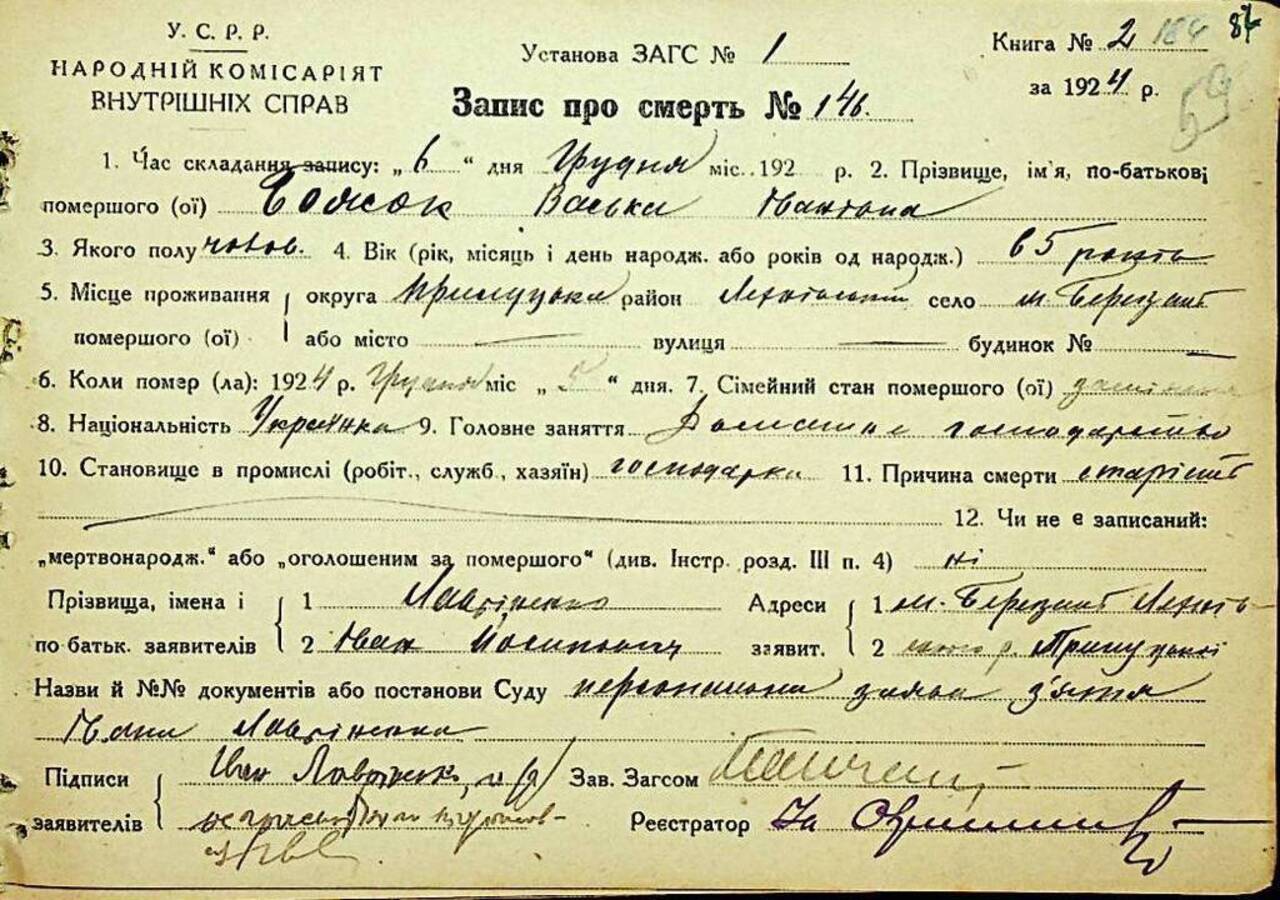 У. С. Р. Р.
НАРОДНІЙ КОМІСАРІЯТ
ВНУТРІШНІХ СПРАВ
Установа ЗАГС № 1
Книга № 2 184 84
за 1924 р. 59
Запис про смерть № 146.
1. Час складання запису: „6“ дня Грудня міс. 192 р. 2. Прізвище, ім'я, по-батькові
помершого (ої)
3. Якого полу чолов. 4. Вік (рік, місяць і день народж. або років од народж.) 65 років
5. Місце проживання помершого (ої) округа Прилуцька район село м. Березань
або місто вулиця будинок №
6. Коли помер (ла): 1924 р. Грудня міс „5“ дня. 7. Сімейний стан помершого (ої)
8. Національність Українка 9. Головне заняття господарство
10. Становище в промислі (робіт., служб., хазяїн) господарка 11. Причина смерти старість
12. Чи не є записаний:
„мертвонародж.“ або „оголошеним за помершого“ (див. Інстр. розд. III п. 4) ні
Прізвища, імена і по батьк. заявителів 1 Лавріненко Адреси заявит. 1 м. Березань
2 Іван 2 р. Прилуцької
Назви й №№ документів або постанови Суду персональна заява з'ятя
Івана Лавріненка
Підписи заявителів Іван Зав. Загсом
Реєстратор